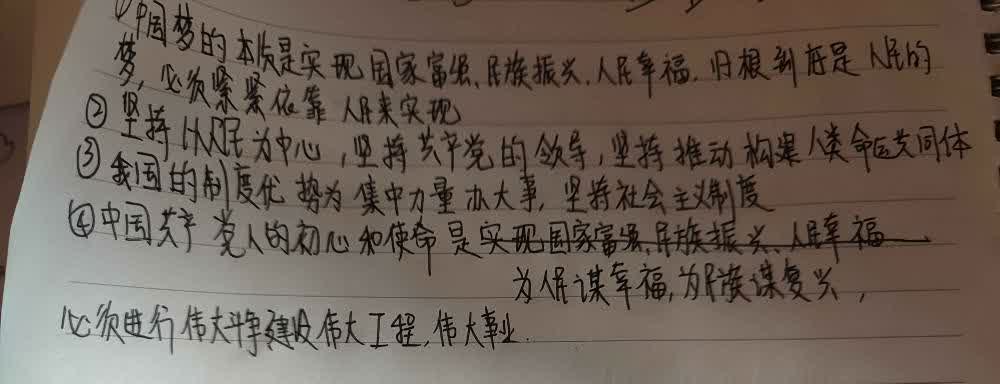 ①中国梦的本质是实现国家富强、民族振兴、人民幸福,归根到底是人民的
梦,必须紧紧依靠人民来实现
②坚持以人民为中心,坚持共产党的领导,坚持推动构建人类命运共同体
③我国的制度优势为集中力量办大事,坚持社会主义制度
④中国共产党人的初心和使命是实现国家富强、民族振兴、人民幸福
为人民谋幸福,为民族谋复兴,
必须进行伟大斗争建设伟大工程,伟大事业.